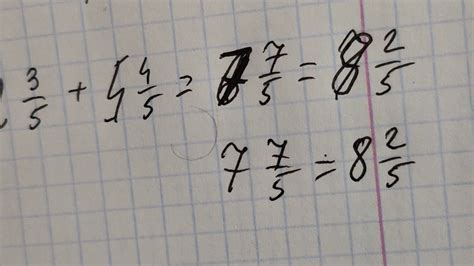 3/5 + 5 4/5 = 7 7/5 = 8 2/5
7 7/5 = 8 2/5